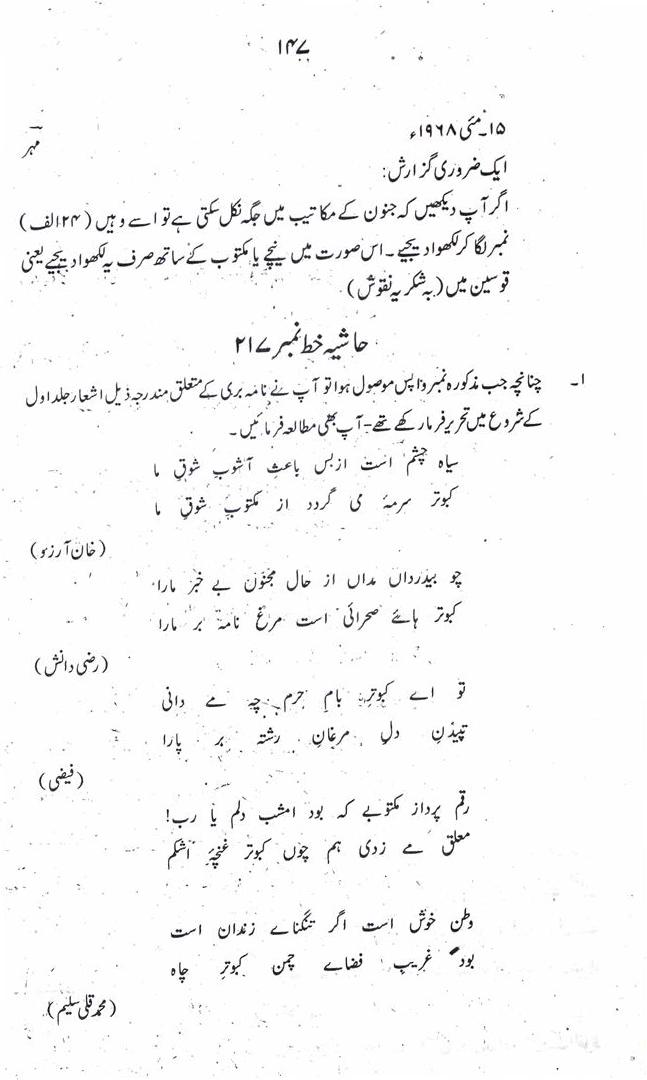 ۱۴۷
۱۵۔مئی ۱۹۶۸ء
مہر
ایک ضروری گزارش:
اگر آپ دیکھیں کہ جنون کے مکاتیب میں جگہ نکل سکتی ہے تو اسے وہیں (۲۴ الف)
نمبر لگا کر لکھوا دیجیے۔ اس صورت میں نیچے یا مکتوب کے ساتھ صرف یہ لکھوا دیجیے یعنی
قوسین میں (بہ شکریہ نقوش)
حاشیہ خط نمبر ۲۱۷
۱۔ چنانچہ جب مذکورہ نمبر واپس موصول ہوا تو آپ نے نامہ بری کے متعلق مندرجہ ذیل اشعار جلد اول
کے شروع میں تحریر فرما رکھے تھے۔ آپ بھی مطالعہ فرمائیں۔
سیاہ چشم است ازبس باعثِ آشوبِ شوقِ ما
کبوتر سرمۂ می گردد از مکتوبِ شوقِ ما
(خان آرزو)
چو بیدرداں مداں از حال مجنوں بے خبر مارا
کبوتر ہائے صحرائی است مرغ نامہ بر مارا
(رضی دانش)
تو اے کبوترِ بامِ حرم چہ مے دانی
تپیدنِ دلِ مرغانِ رشتہ بر پارا
(فیضی)
رقم پرداز مکتوبے کہ بود امشب دلم یا رب!
معلق مے زدی ہم چوں کبوتر غنچۂ اشکم
وطن خوش است اگر تنگنائے زندان است
بود غریب فضائے چمن کبوترِ چاہ
(محمد قلی سلیم)